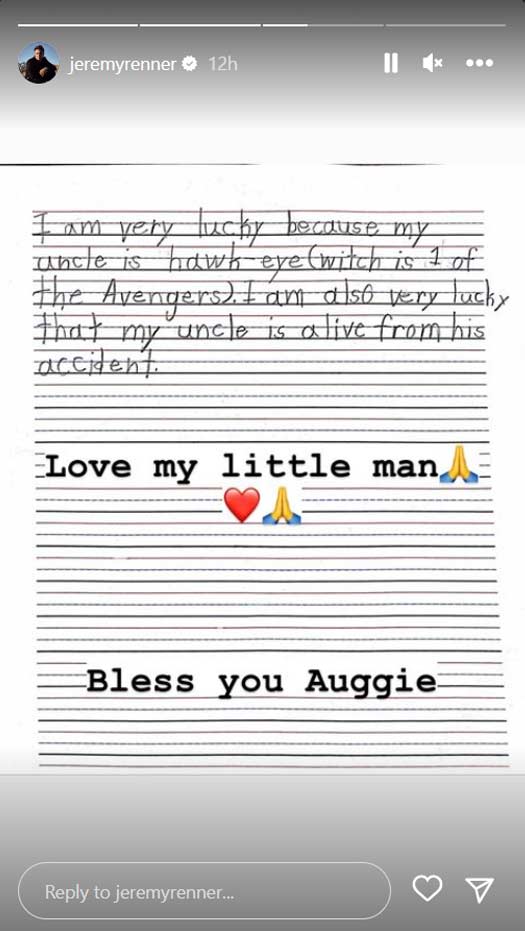 jeremyrenner 12h
I am very lucky because my
uncle is hawk-eye(witch is 1 of
the Avengers). I am also very lucky
that my uncle is alive from his
accident.
Love my little man🙏
❤️🙏
Bless you Auggie
Reply to jeremyrenner...